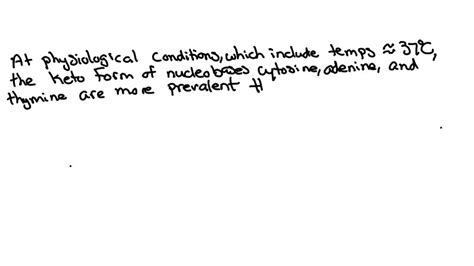 At physiological conditions, which include temps ≈ 37°C,
the keto form of nucleobases cytosine, adenine, and
thymine are more prevalent H